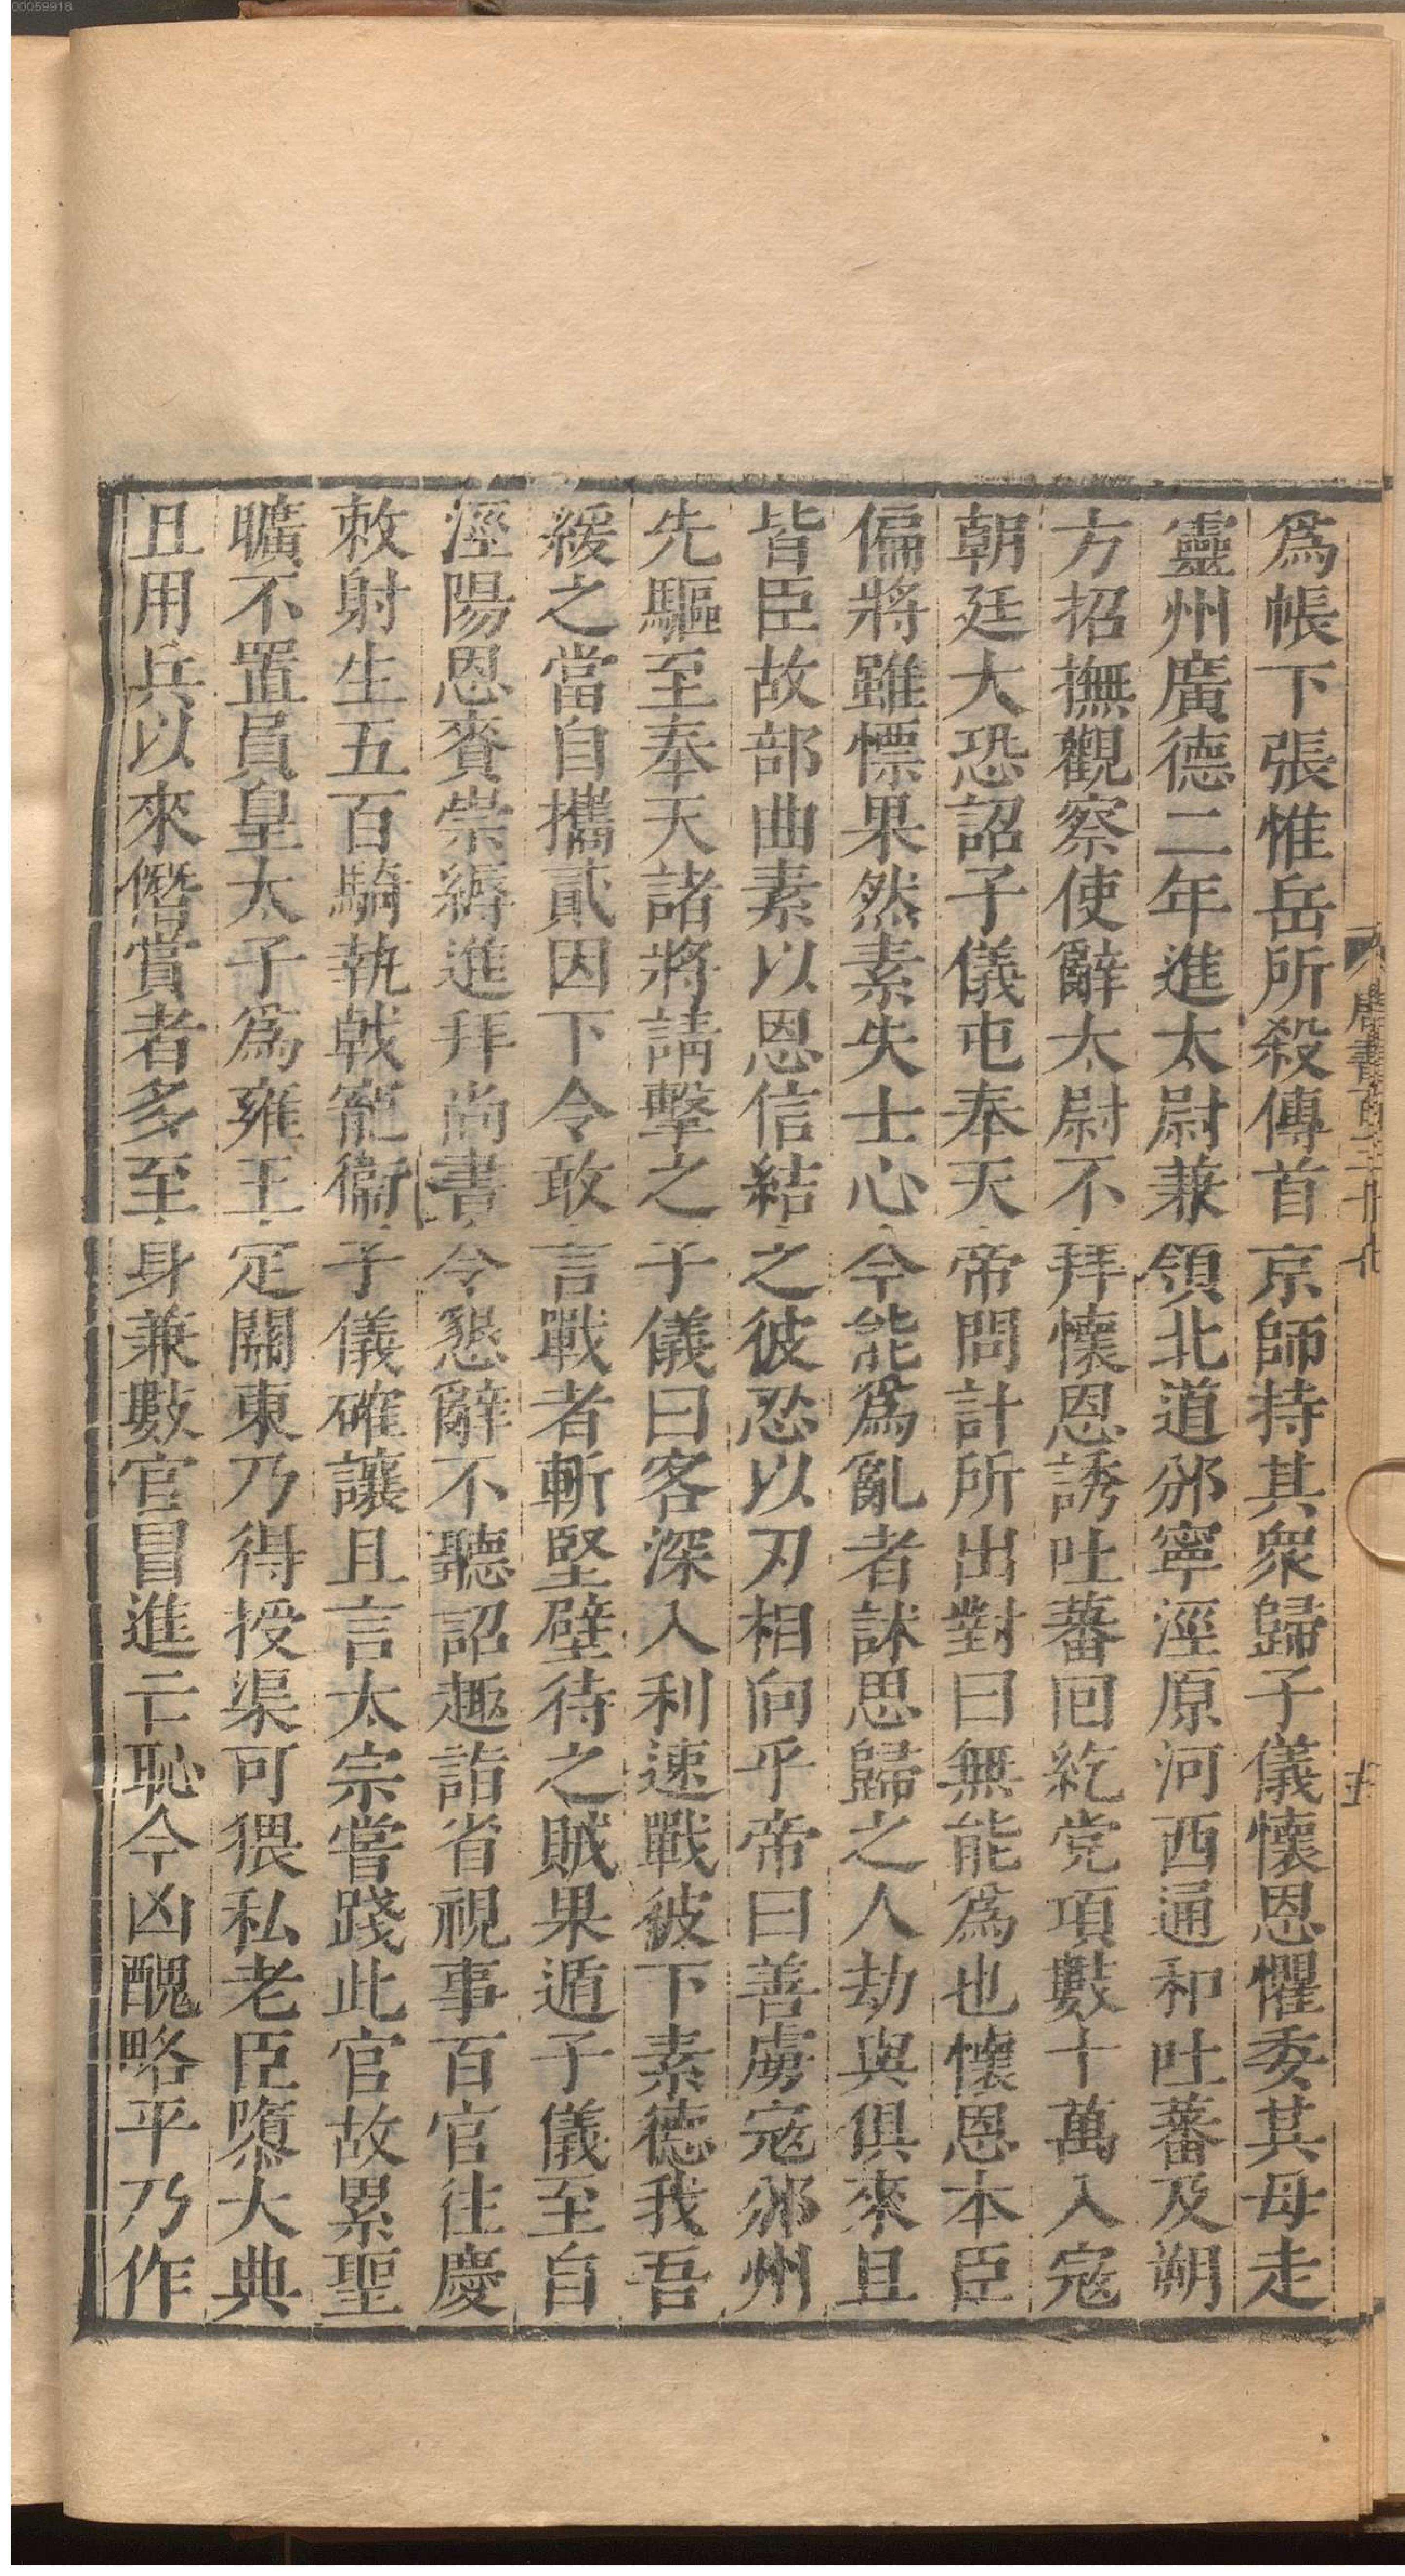 00059918
爲帳下張惟岳所殺傳首京師持其衆歸子儀懷恩懼委其母走
靈州廣德二年進太尉兼領北道邠寧涇原河西通和吐蕃及朔
方招撫觀察使辭太尉不拜懷恩誘吐蕃回紇党項數十萬入寇
朝廷大恐詔子儀屯奉天帝問計所出對曰無能爲也懷恩本臣
偏將雖慓果然素失士心今能爲亂者訹思歸之人劫與俱來且
皆臣故部曲素以恩信結之彼忍以刃相向乎帝曰善虜寇邠州
先驅至奉天諸將請擊之子儀曰客深入利速戰彼下素德我吾
緩之當自攜貳因下令敢言戰者斬堅壁待之賊果遁子儀至自
涇陽恩賚崇縟進拜尚書令懇辭不聽詔趣詣省視事百官往慶
敕射生五百騎執戟寵衛子儀確讓且言太宗嘗踐此官故累聖
曠不置員皇太子爲雍王定關東乃得授渠可猥私老臣隳大典
且用兵以來僭賞者多至身兼數官冒進亡恥今凶醜略平乃作